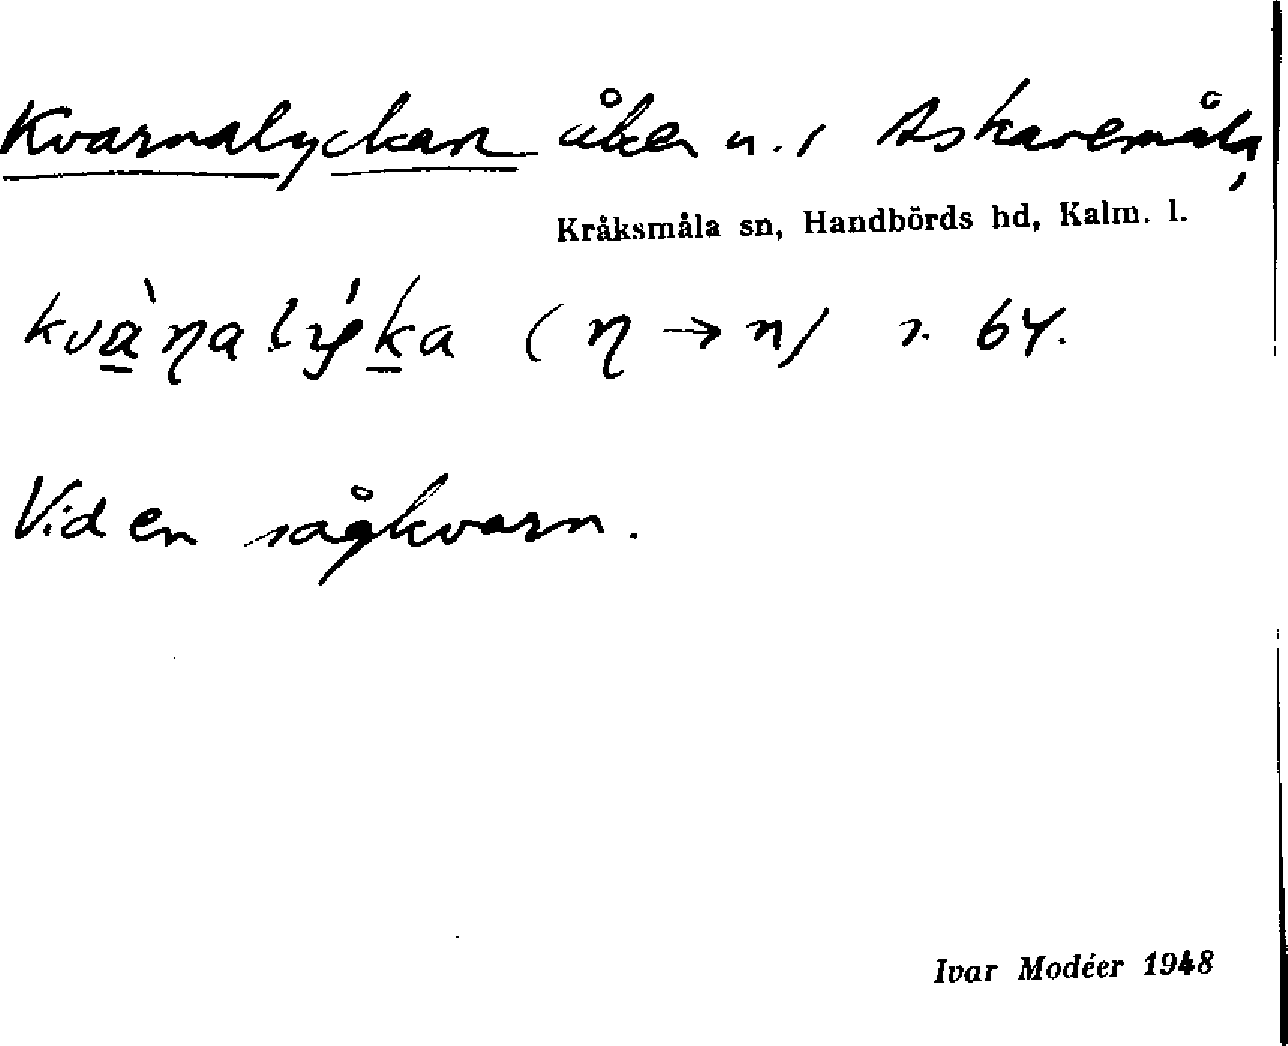 Kvarnalyckan åker n. i Askaremåla,
Kråksmåla sn, Handbörds hd, Kalm. l.
kvàɳalýka (ɳ → n) s. 64.
Vid en sågkvarn.
Ivar Modéer 1948